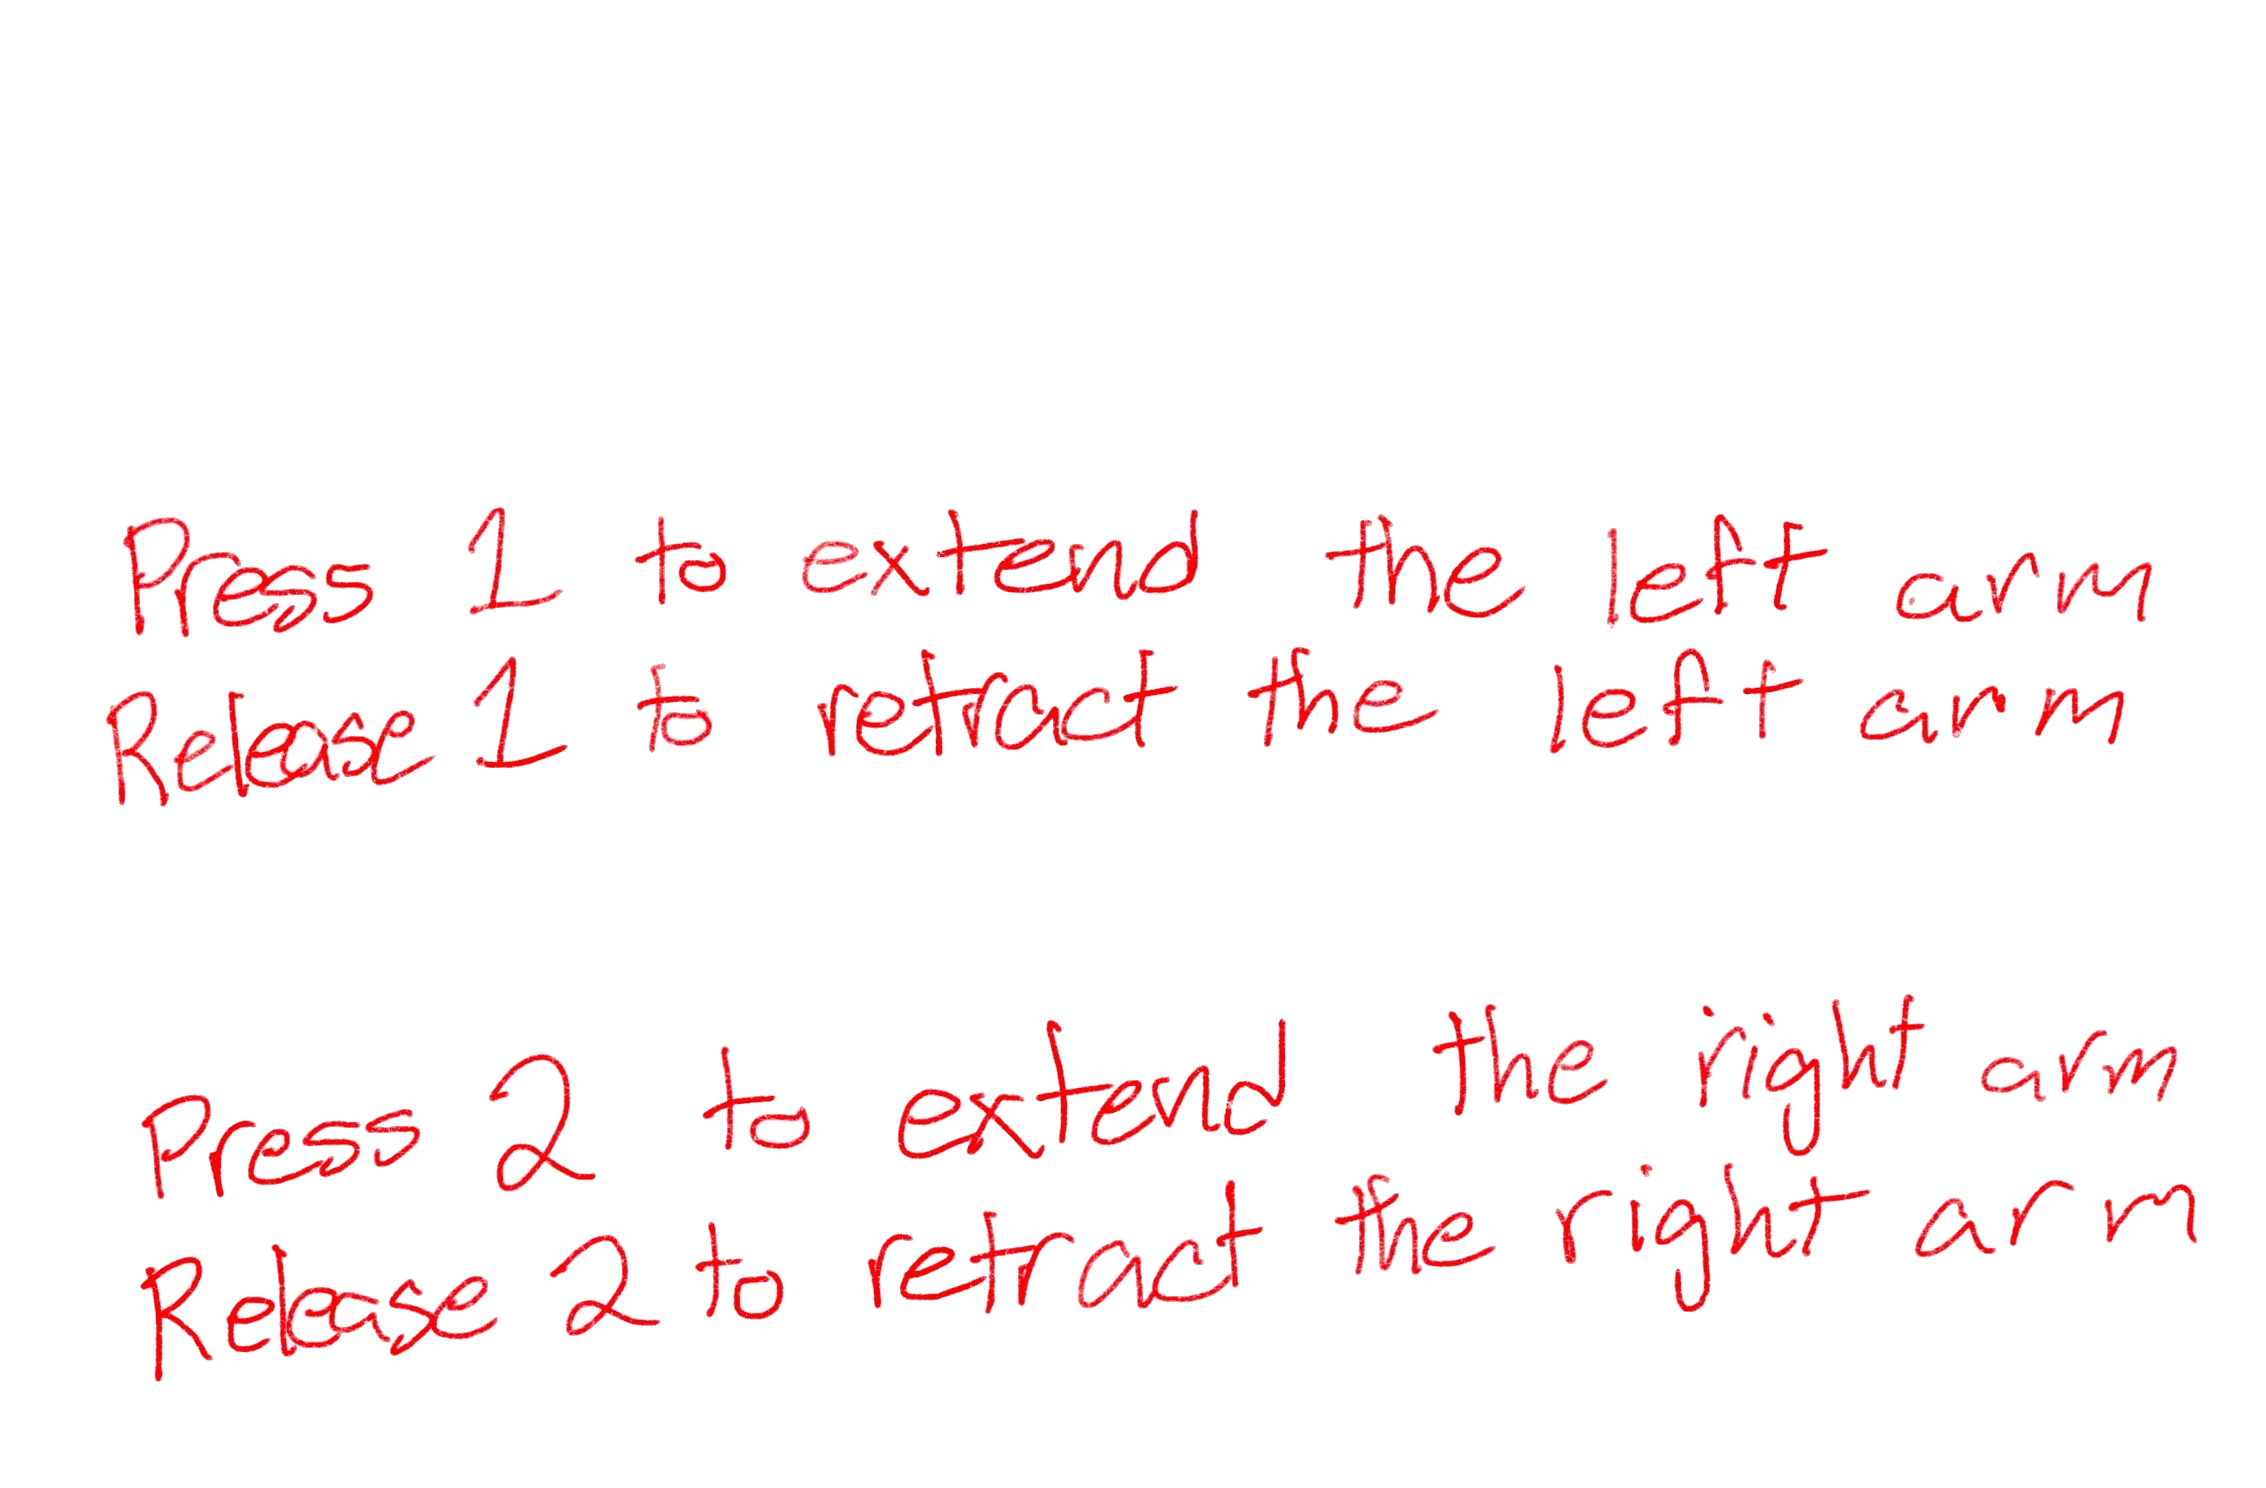 Press 1 to extend the left arm
Release 1 to retract the left arm
Press 2 to extend the right arm
Release 2 to retract the right arm